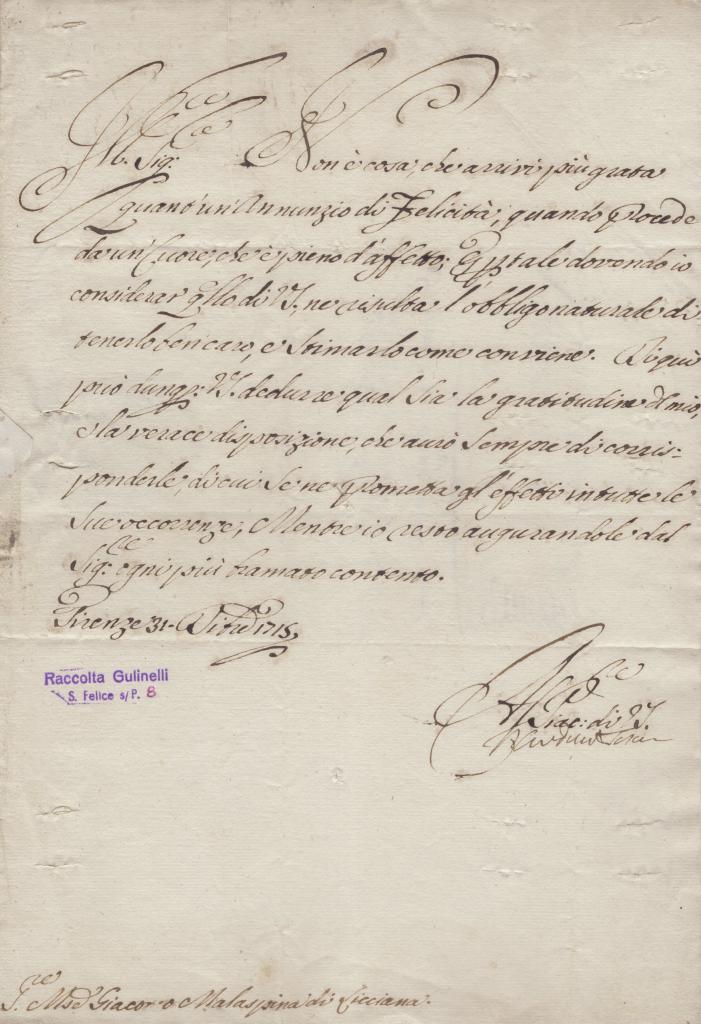 Ill.re Sig.re Non è cosa, che arrivi più grata
quant'un'Annunzio di Felicità, quando Procede
da un Cuore, che è pieno d'affetto; E p tale dovendo io
considerar' qllo di V.S., ne risulta l'obbligo naturale di
tenerlo ben caro, e stimarlo come conviene. Di quì
può dunq: V.S. dedurre qual sia la gratitudine d mio,
e la verace disposizione, che avrò sempre di corris-
ponderle, di cui se ne Prometta gl'effetti in tutte le
sue occorrenze; Mentre io resto augurandole dal
Sig.re ogni più bramato contento.
Firenze 31. Dibre 1715,
Raccolta Gulinelli
S. Felice s/P. 8
di V.S.
Giacomo Malaspina di Licciana.